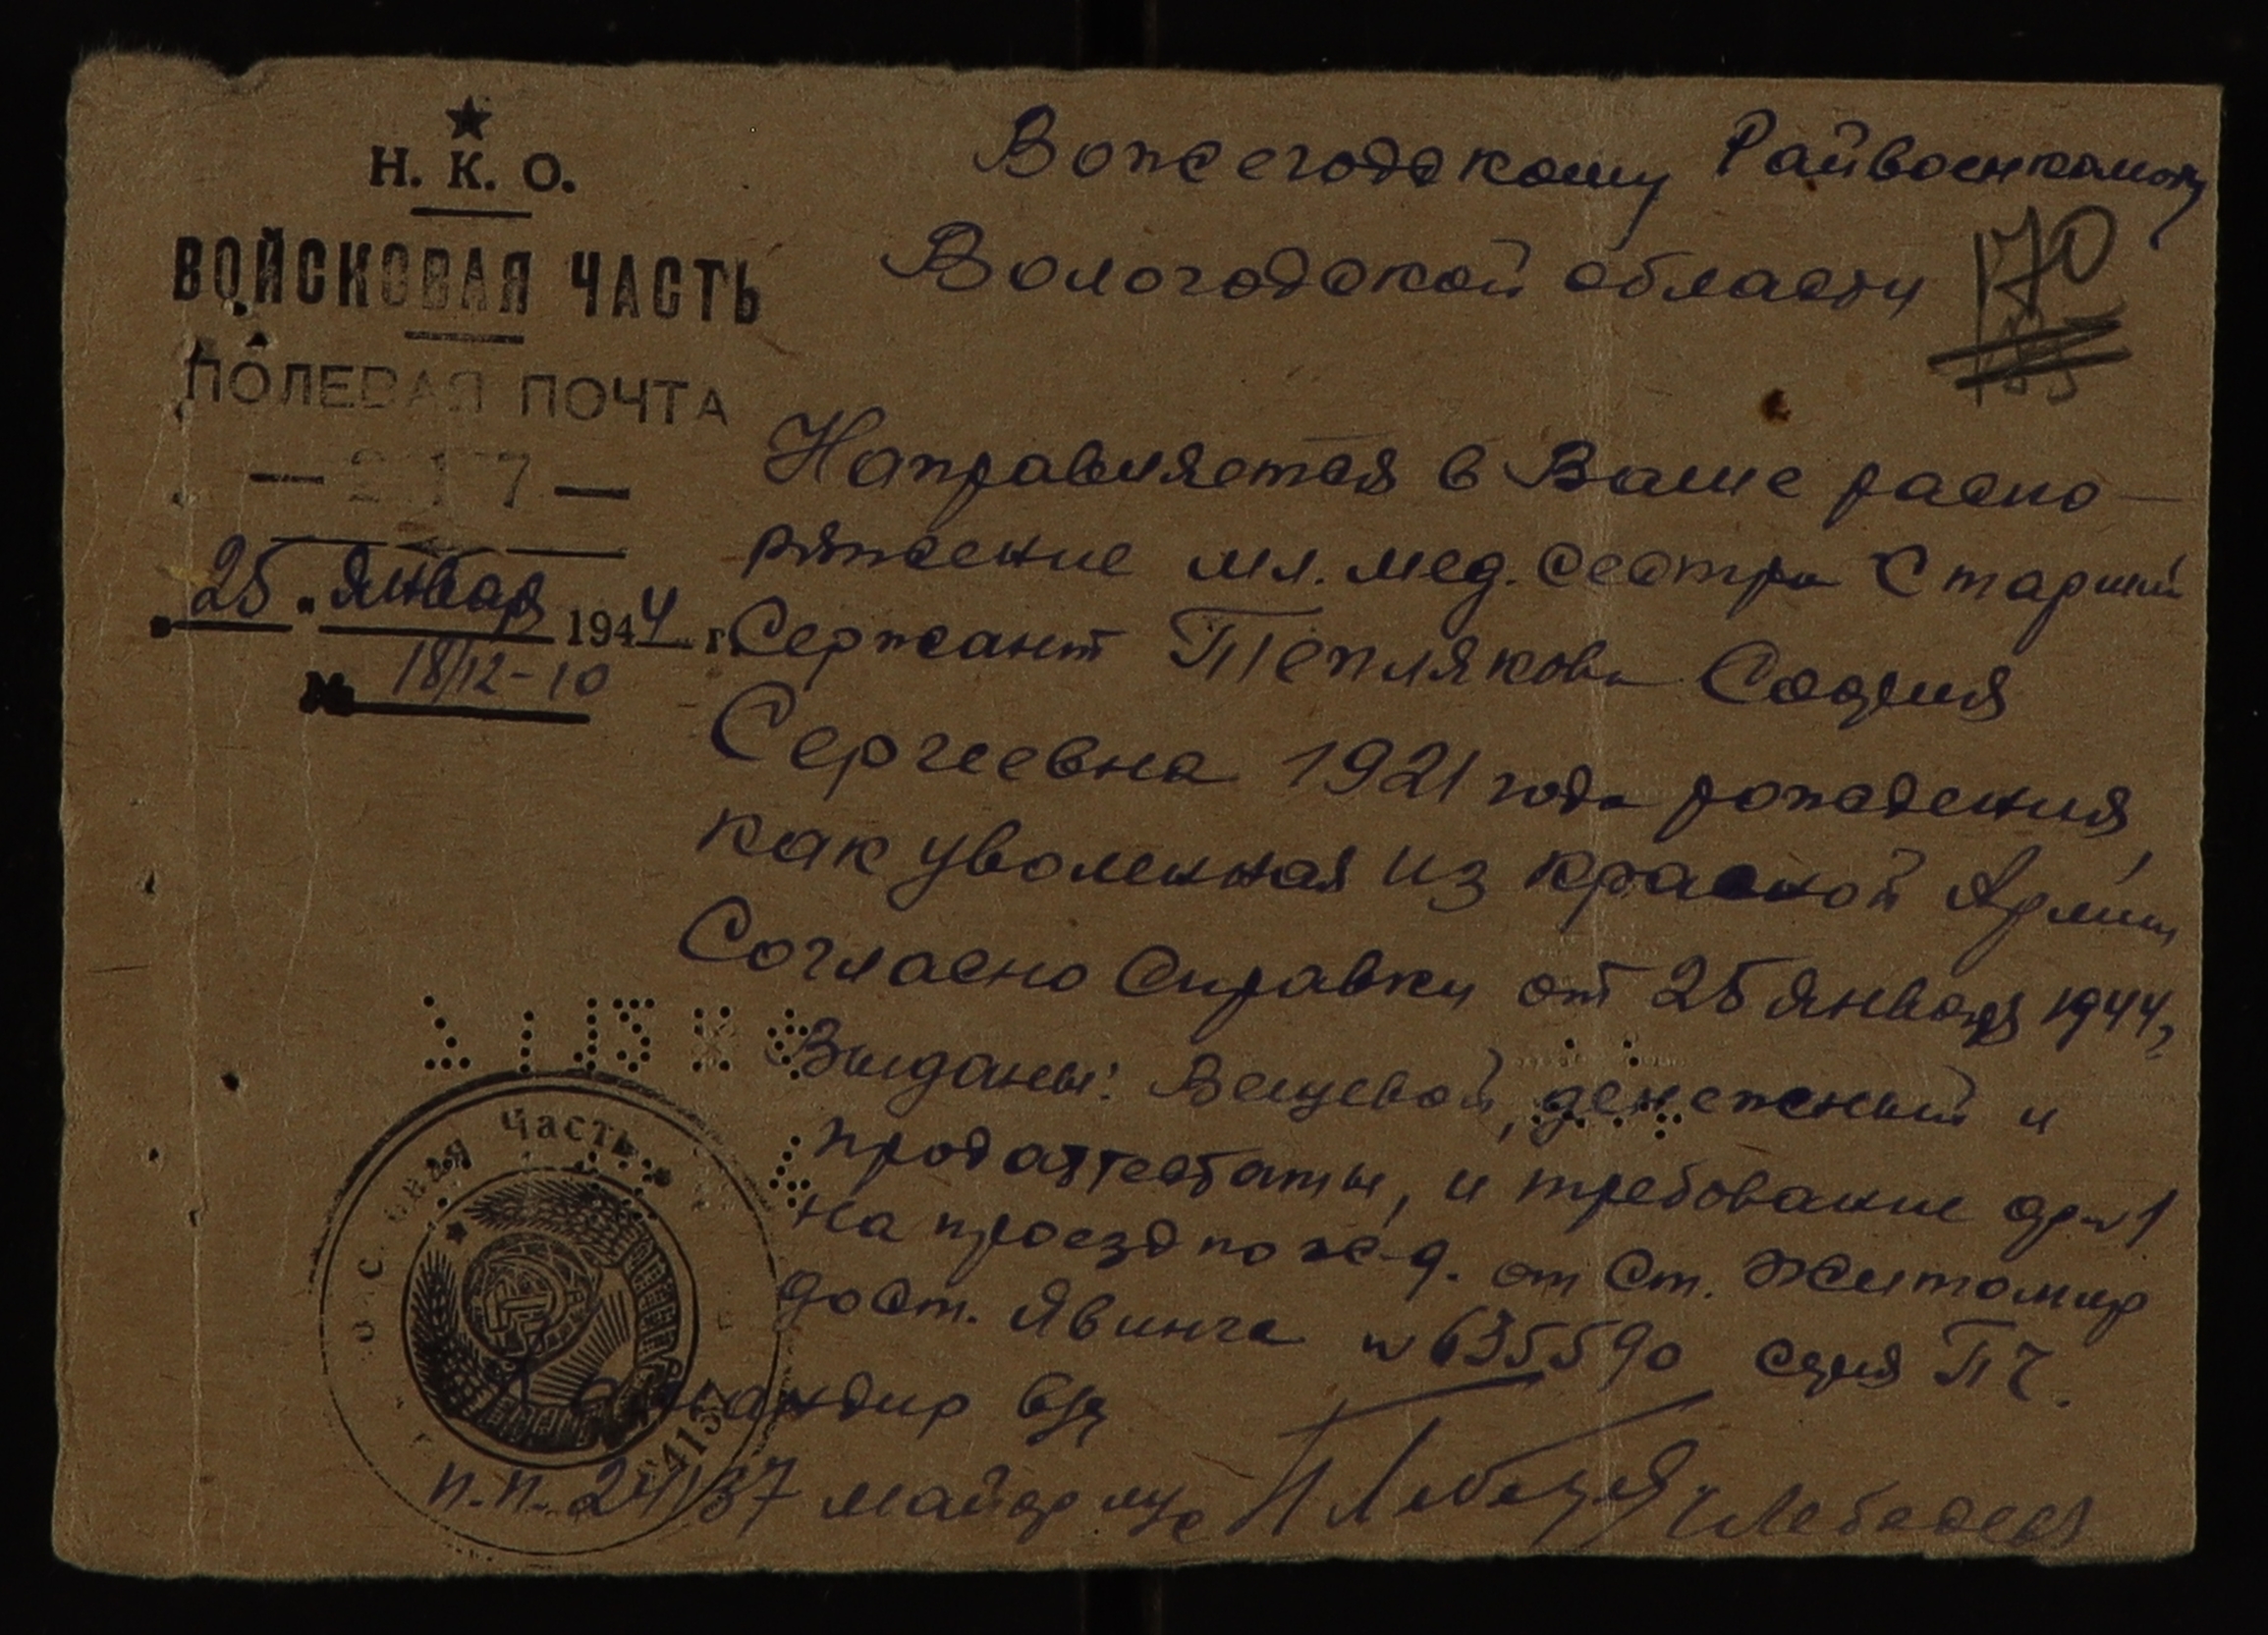 Н. К. О.
ВОЙСКОВАЯ ЧАСТЬ
ПОЛЕВАЯ ПОЧТА
25 . Января 1944 г.
№ 18/12-10
Вожегодскому Райвоенкомату
Вологодской области
170
Направляется в Ваше распо-
ряжение мл. мед. сестра Старший
Сержант Теплякова София
Сергеевна 1921 года рождения,
как уволенная из красной Армии
Согласно Справки от 25 января 1944 г.
Выданы: Вещевой, денежный и
продаттестаты, и требование ф-№1
на проезд по ж-д. от Ст. Житомир
до ст. Явинга № 635590 серия ПЧ.
Командир в/ч
п.п. 24137 майор м/с Лебедев
часть
24137